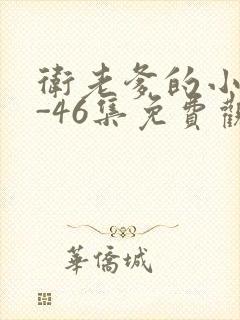 衛老爹的小
-46集免費觀
華僑城